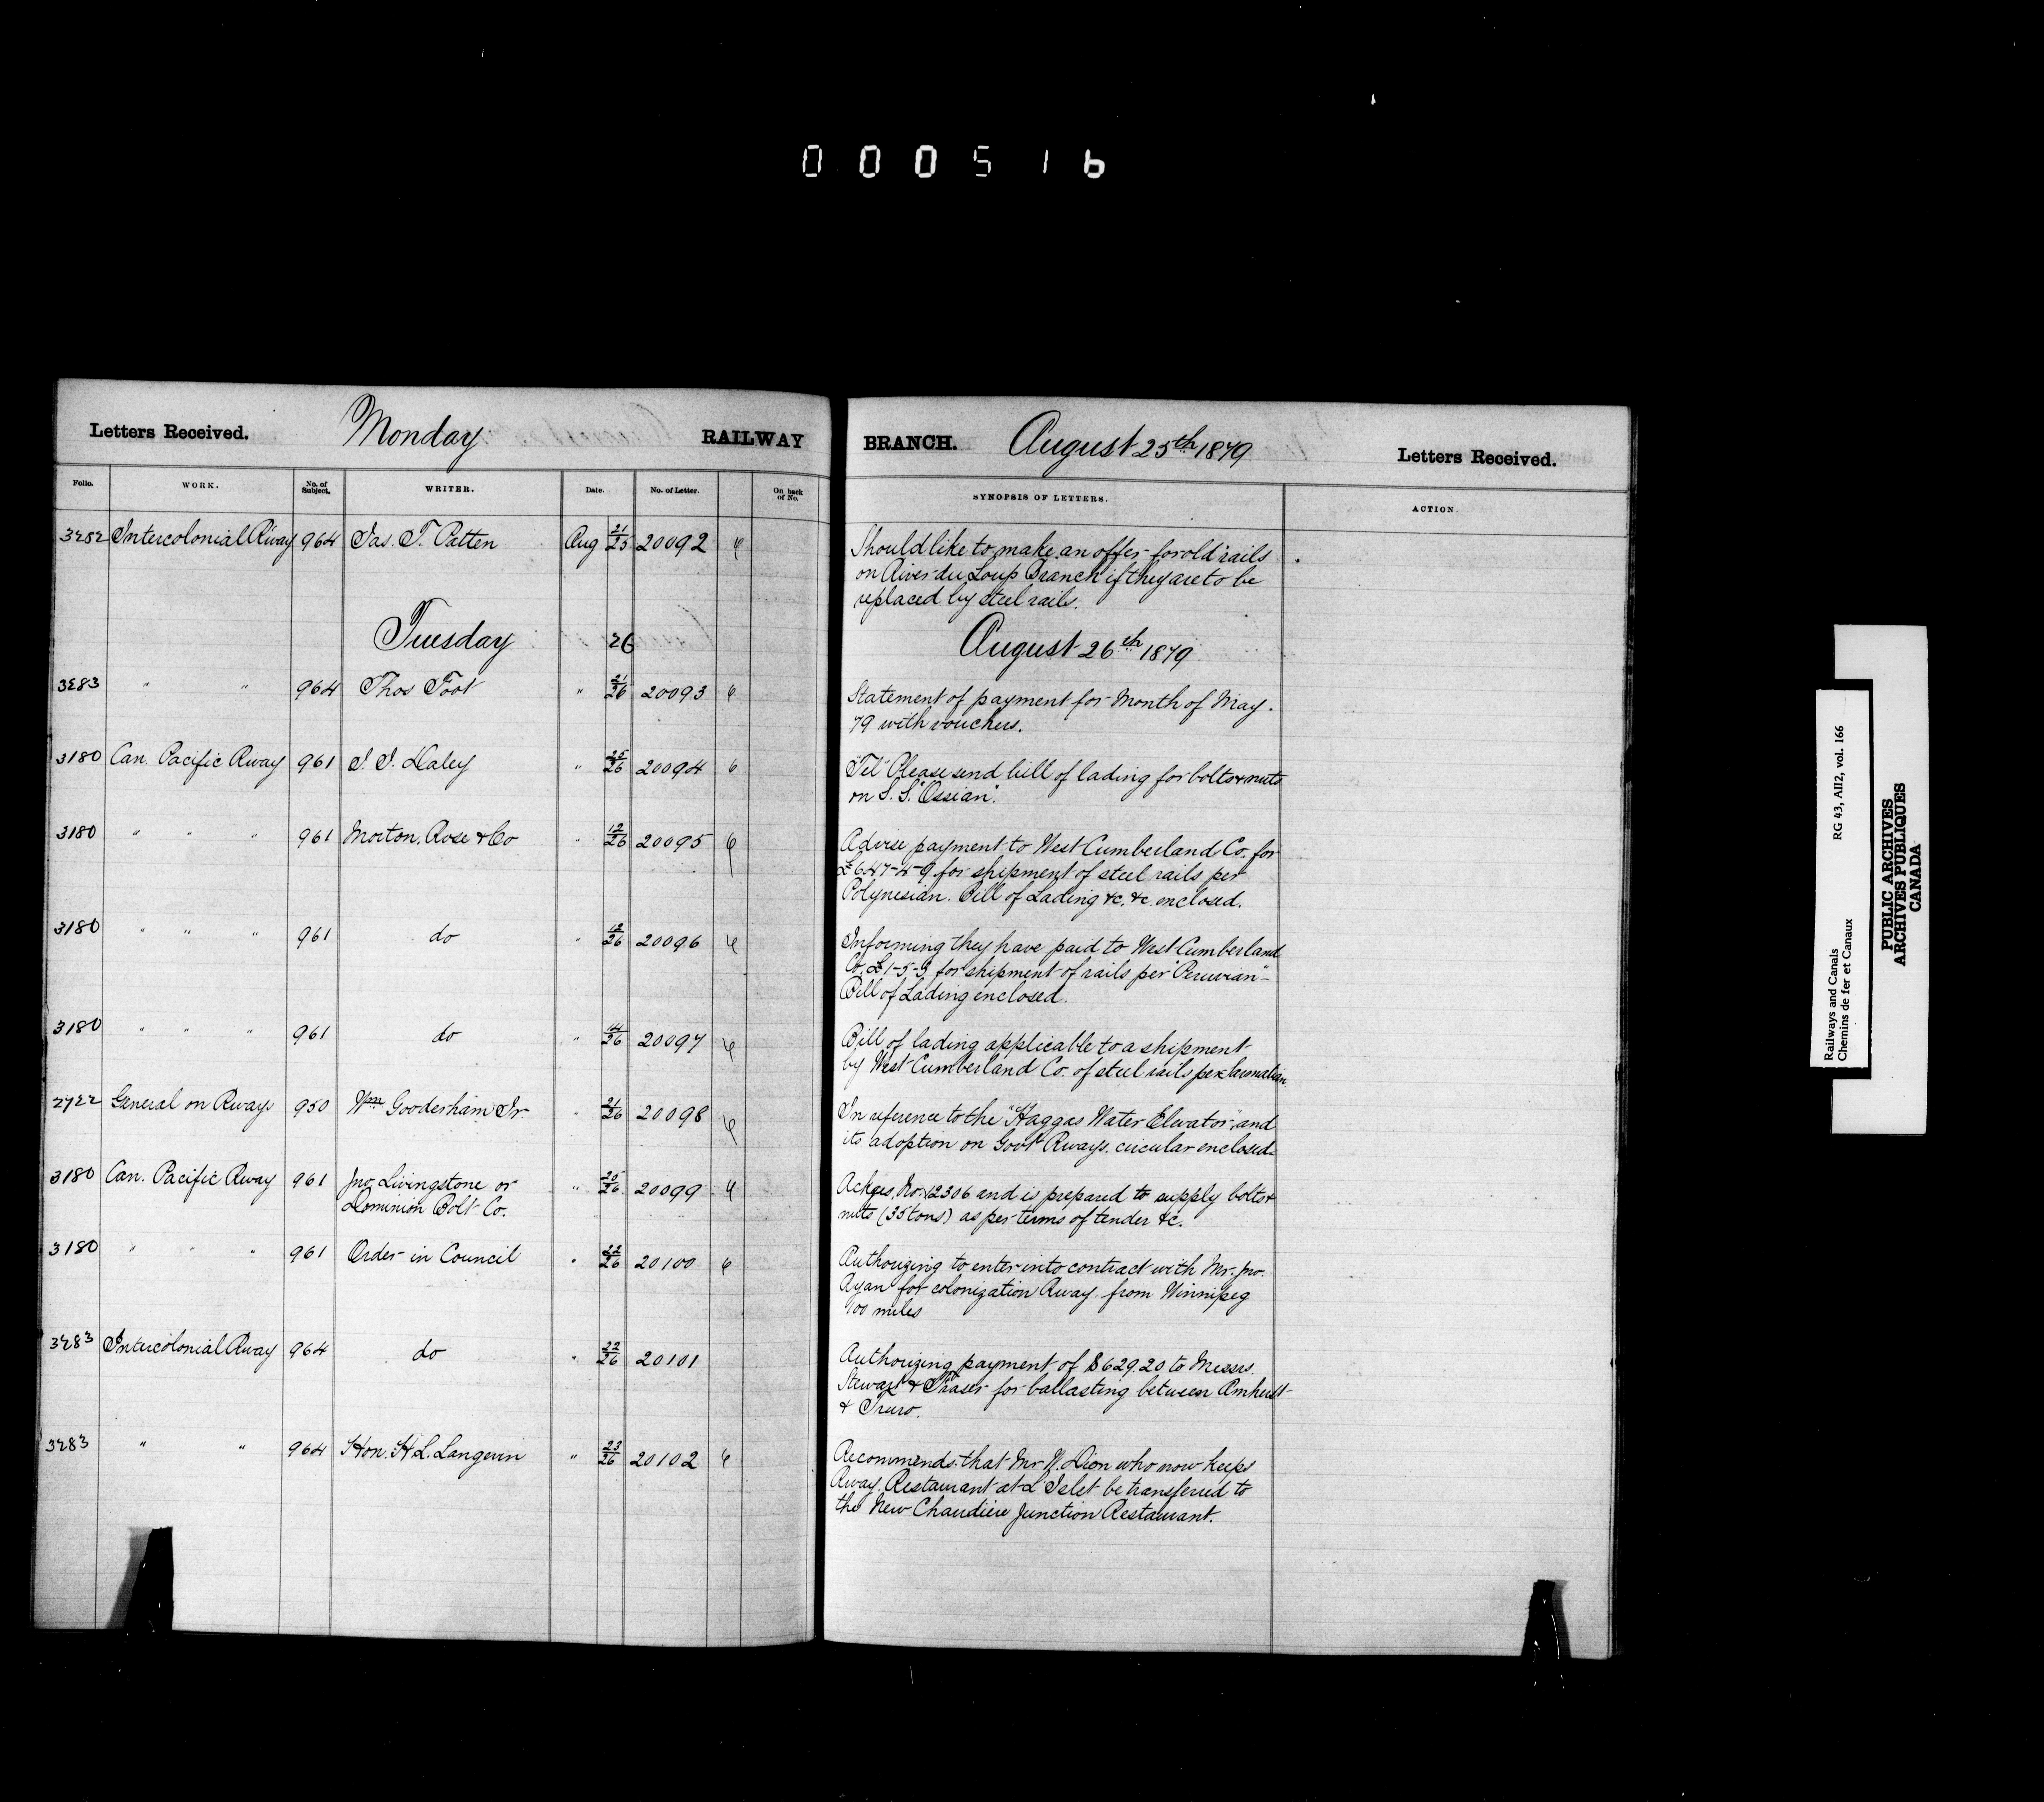 000516
Letters Received. Monday RAILWAY
Folio. WORK. No. of Subject. WRITER. Date. No. of Letter. On back of No.
3282 Intercolonial Rway 964 Jas. T. Patten Aug 21/25 20092
Tuesday 26
3283 " " 964 Thos Foot " 21/26 20093
3180 Can. Pacific Rway 961 J. J. Daley " 25/26 20094
3180 " " " 961 Morton, Rose & Co " 12/26 20095
3180 " " " 961 do " 12/26 20096
3180 " " " 961 do " 14/26 20097
2722 General on Rways 950 Wm Gooderham Jr " 21/26 20098
3180 Can. Pacific Rway 961 Jno. Livingstone or " 25/26 20099
Dominion Bolt Co.
3180 " " " 961 Order in Council " 22/26 20100
3283 Intercolonial Rway 964 do " 22/26 20101
3283 " " 964 Hon. H. L. Langevin " 23/26 20102
BRANCH. August 25th 1879 Letters Received.
SYNOPSIS OF LETTERS. ACTION.
Should like to make an offer for old rails
on River du Loup Branch if they are to be
replaced by steel rails.
August 26th 1879
Statement of payment for Month of May
79 with vouchers.
"Tel" Please send bill of lading for bolts & nuts
on S. S. "Ossian".
Advise payment to West Cumberland Co. for
£647-4-9 for shipment of steel rails per
Polynesian. Bill of Lading &c. &c. enclosed.
Informing they have paid to West Cumberland
Co. £1-5-9 for shipment of rails per "Peruvian"
Bill of Lading enclosed.
Bill of lading applicable to a shipment
by West Cumberland Co. of steel rails per Sarmatian.
In reference to the "Haggas Water Elevator", and
its adoption on Govt Rways. circular enclosed.
Ackges. No. 12306 and is prepared to supply bolts &
nuts (35 tons) as per terms of tender &c.
Authorizing to enter into contract with Mr. Jno.
Ryan for colonization Rway from Winnipeg
100 miles
Authorizing payment of $629.20 to Messrs.
Stewart & Fraser for ballasting between Amherst
& Truro.
Recommends that Mr N. Dion who now keeps
Rway. Restaurant at L'Islet be transferred to
the New Chaudiere Junction Restaurant.
Railways and Canals RG 43, AII2, vol. 166
Chemins de fer et Canaux
PUBLIC ARCHIVES
ARCHIVES PUBLIQUES
CANADA